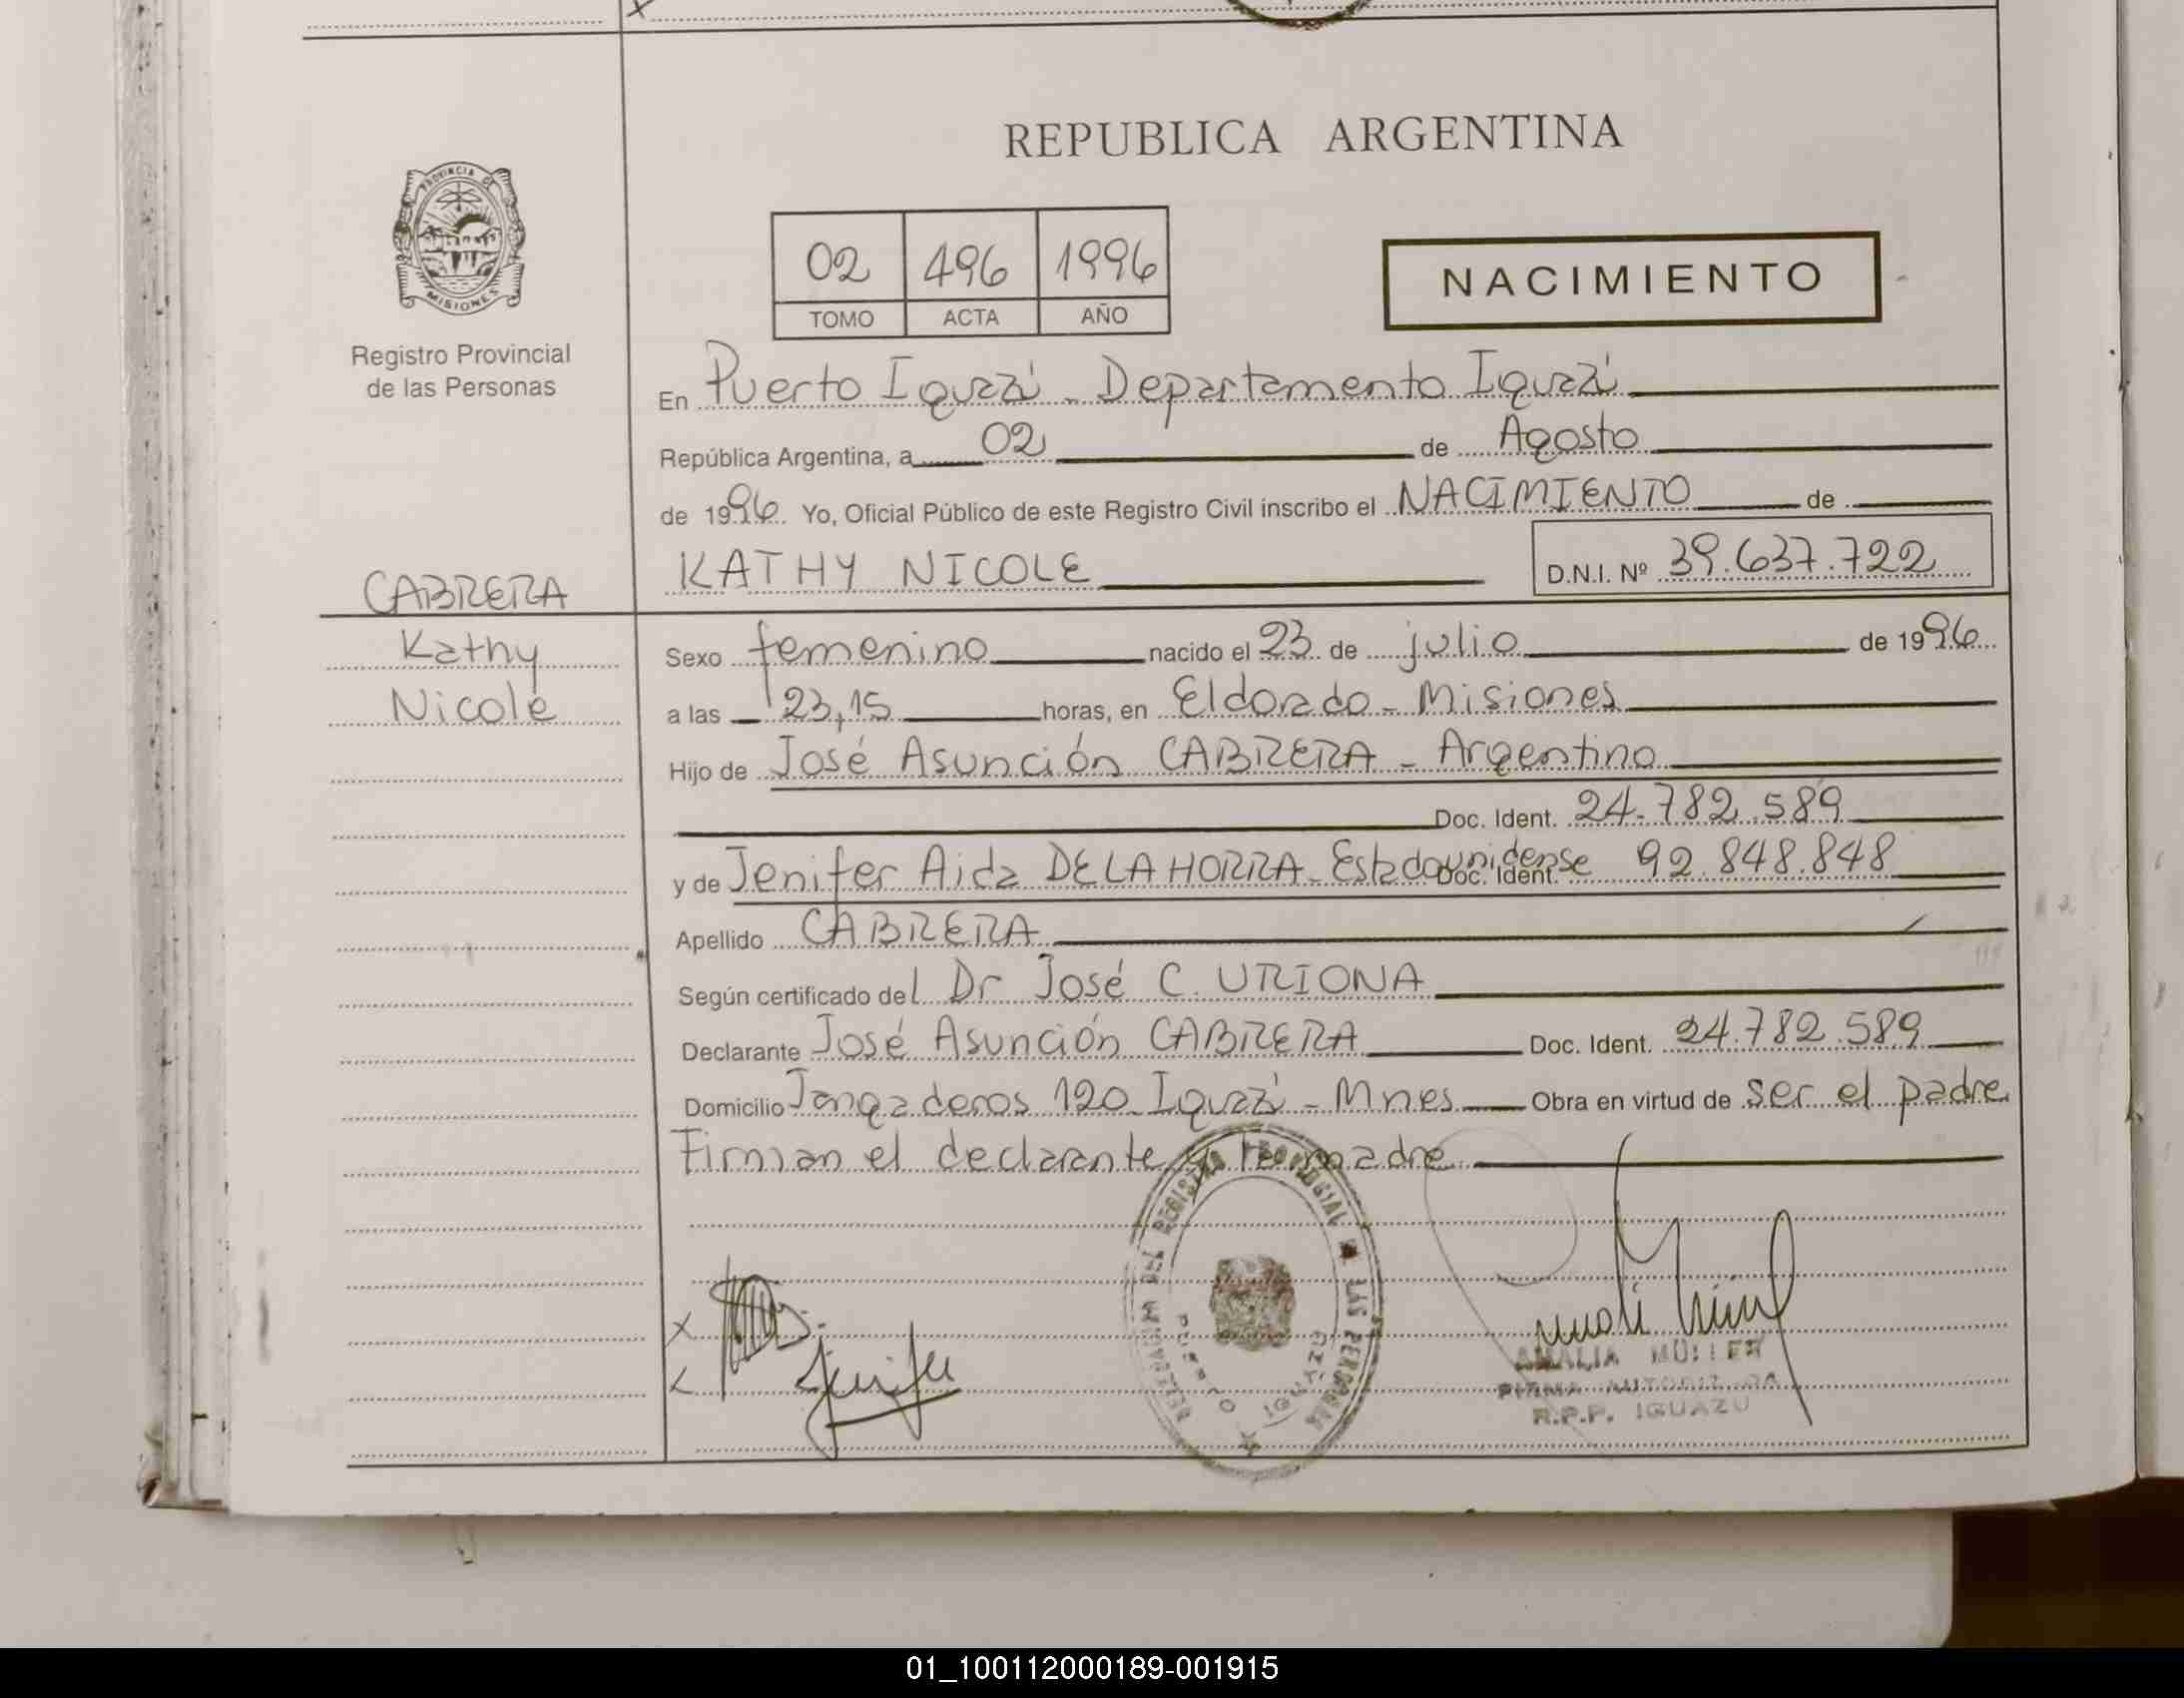 REPUBLICA ARGENTINA
PROVINCIA DE
MISIONES
Registro Provincial
de las Personas
02 496 1996
TOMO ACTA AÑO
NACIMIENTO
En Puerto Iguazú - Departamento Iguazú
República Argentina, a 02 de Agosto
de 1996. Yo, Oficial Público de este Registro Civil inscribo el NACIMIENTO de
KATHY NICOLE D.N.I. Nº 39.637.722
CABRERA
Kathy
Nicole
Sexo femenino nacido el 23 de julio de 1996
a las 23,15 horas, en Eldorado - Misiones
Hijo de José Asunción CABRERA - Argentino
Doc. Ident. 24.782.589
y de Jenifer Aida DE LA HORRA - Estadounidense Doc. Ident. 92.848.848
Apellido CABRERA
Según certificado del Dr José C. URIONA
Declarante José Asunción CABRERA Doc. Ident. 24.782.589
Domicilio Jangaderos 120 - Iguazú - Mnes Obra en virtud de ser el padre
Firman el declarante y la madre
X
Jenifer
DEL REGISTRO PROVINCIAL DE LAS PERSONAS
PUERTO IGUAZU
AMALIA MÜLLER
FIRMA AUTORIZADA
R.P.P. IGUAZU
01_100112000189-001915